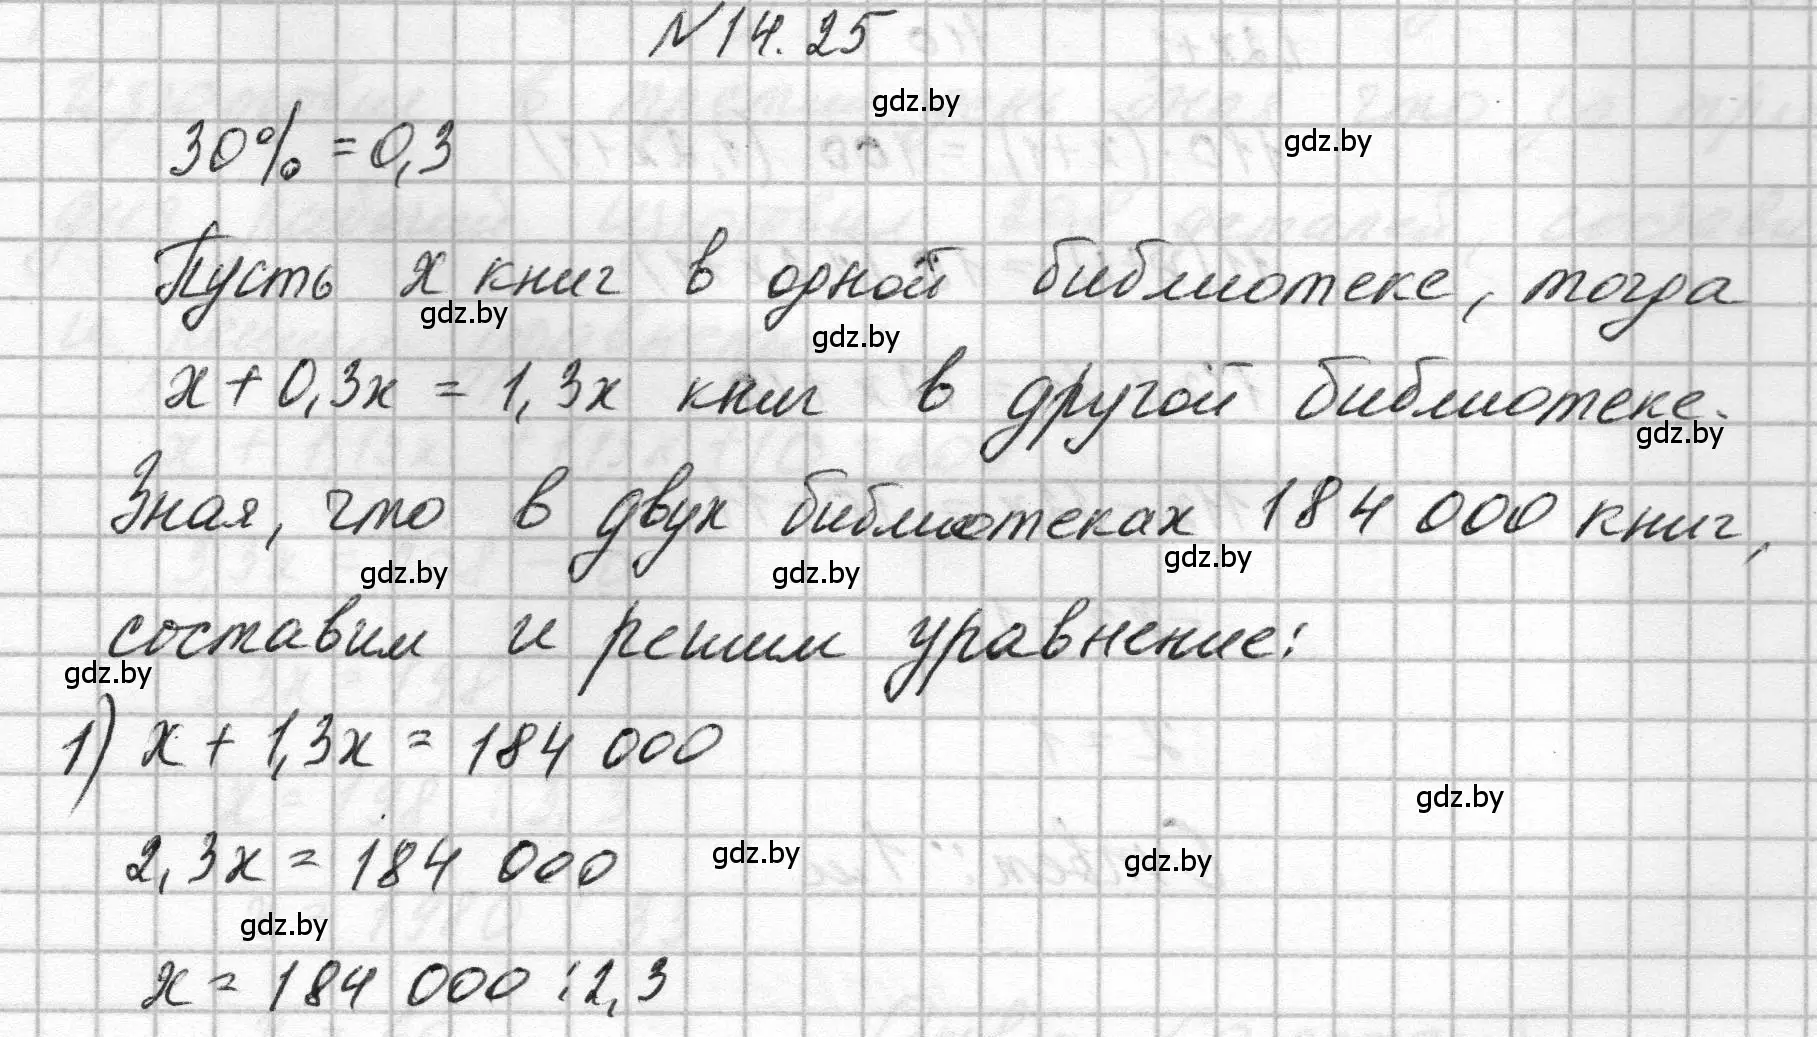 №14.25
gdz.by
gdz.by
30% = 0,3
Пусть x книг в одной библиотеке, тогда
gdz.by
gdz.by
x + 0,3x = 1,3x книг в другой библиотеке.
gdz.by
Зная, что в двух библиотеках 184 000 книг,
gdz.by
gdz.by
gdz.by
составим и решим уравнение:
gdz.by
1) x + 1,3x = 184 000
gdz.by
2,3x = 184 000
gdz.by
gdz.by
gdz.by
x = 184 000 : 2,3